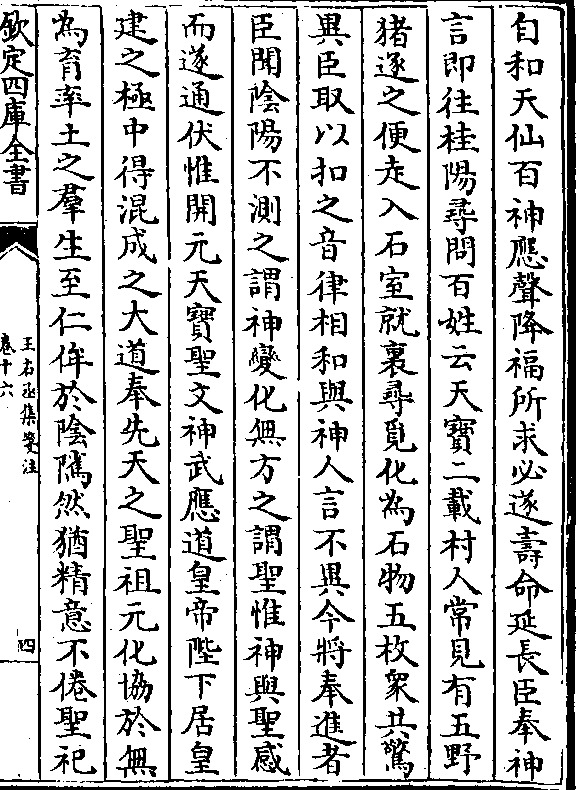 自和天仙百神應聲降福所求必遂壽命延長臣奉神
言即往桂陽尋問百姓云天寶二載村人常見有五野
猪逐之便走入石室就裏尋覓化為石物五枚衆共驚
異臣取以扣之音律相和與神人言不異今將奉進者
臣聞陰陽不測之謂神變化無方之謂聖惟神與聖感
而遂通伏惟開元天寶聖文神武應道皇帝陛下居皇
建之極中得混成之大道奉先天之聖祖元化協於無
為育率土之羣生至仁侔於陰隲然猶精意不倦聖祀
欽定四庫全書
王右丞集箋注
卷十六
四